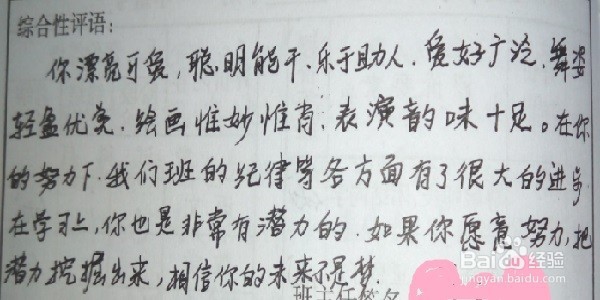 综合性评语:
你漂亮可爱,聪明能干、乐于助人,爱好广泛,舞姿
轻盈优美,绘画惟妙惟肖,表演韵味十足。在你
的努力下,我们班的纪律等各方面有了很大的进步
在学习上,你也是非常有潜力的,如果你愿意努力,把
潜力挖掘出来,相信你的未来不是梦。
班主任签名
Baidu 经验
jingyan.baidu.com